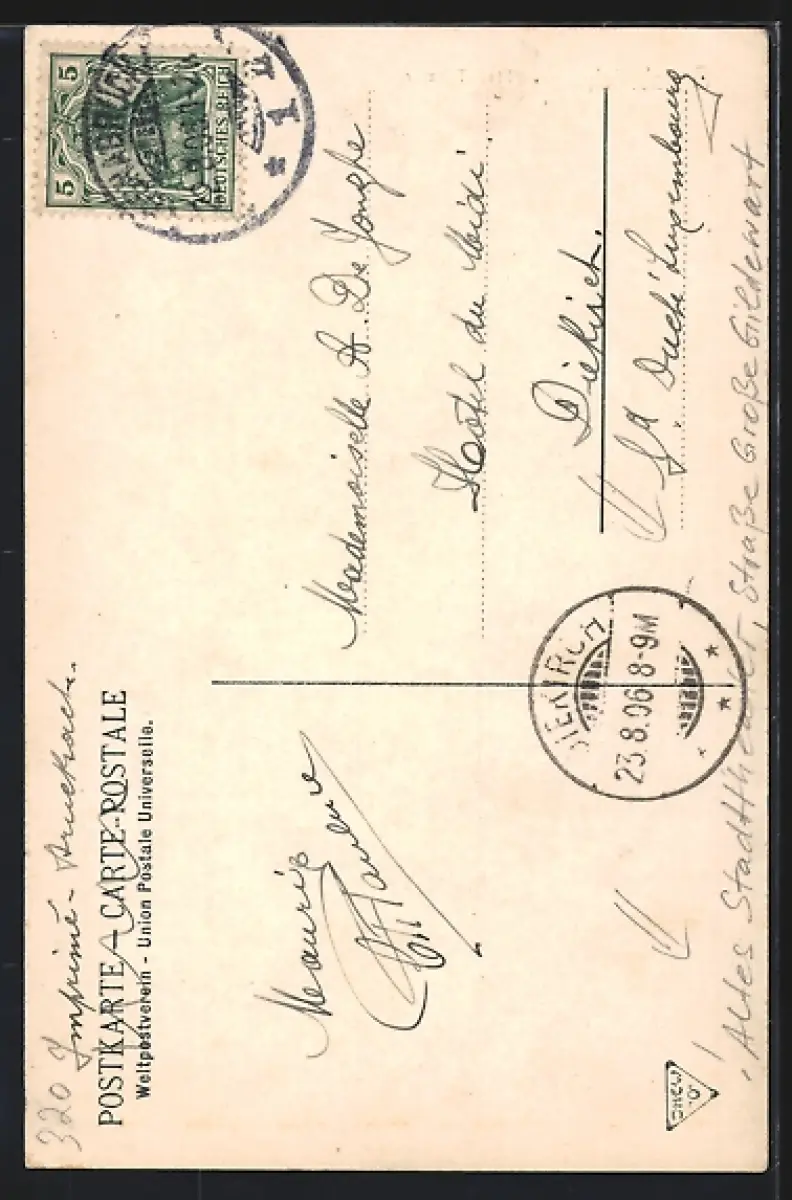 320 Imprimé - Drucksache.
POSTKARTE - CARTE-POSTALE
Weltpostverein - Union Postale Universelle.
5
5
DEUTSCHES REICH
* 1 u
Mademoiselle A. De Jonghe
Hotel du Midi
Diekirch.
Gd Duché Luxembourg.
DIEKIRCH
23.8.06 8-9M
Maurice
Altes Stadttheater, Straße Große Gildewart